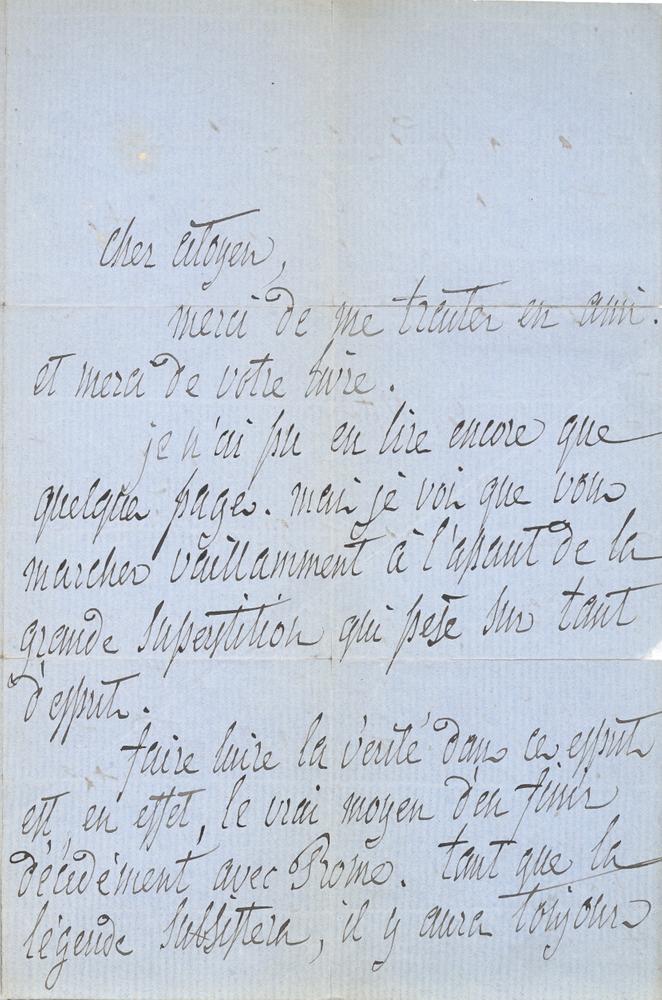 cher citoyen,
merci de me traiter en ami.
et merci de votre livre.
je n'ai pu en lire encore que
quelques pages. mais je vois que vous
marchez vaillamment à l'assaut de la
grande superstition qui pèse sur tant
d'esprits.
faire luire la vérité dans ces esprits
est, en effet, le vrai moyen d'en finir
décidément avec Rome. tant que la
légende subsistera, il y aura toujours